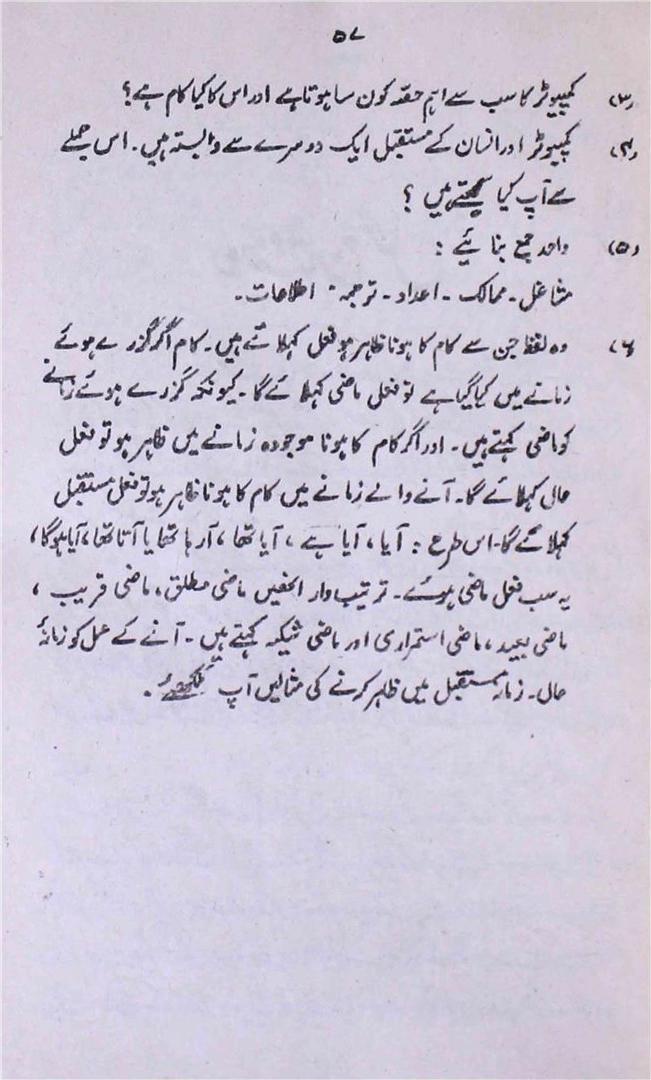 ۵۷
(۳) کمپیوٹر کا سب سے اہم حصّہ کون سا ہوتا ہے اور اس کا کیا کام ہے؟
(۴) کمپیوٹر اور انسان کے مستقبل ایک دوسرے سے وابستہ ہیں۔ اس جملے
سے آپ کیا سمجھتے ہیں ؟
(۵) واحد جمع بنائیے :
مشاغل۔ ممالک۔ اعداد۔ ترجمہ۔ اطلاعات۔
(۶) وہ لفظ جن سے کام کا ہونا ظاہر ہو فعل کہلاتے ہیں۔ کام اگر گزرے ہوئے
زمانے میں کیا گیا ہے تو فعل ماضی کہلائے گا۔ کیونکہ گزرے ہوئے زمانے
کو ماضی کہتے ہیں۔ اور اگر کام کا ہونا موجودہ زمانے میں ظاہر ہو تو فعل
حال کہلائے گا۔ آنے والے زمانے میں کام کا ہونا ظاہر ہو تو فعل مستقبل
کہلائے گا۔ اس طرح : آیا، آیا ہے، آیا تھا، آرہا تھا یا آتا تھا، آیا ہوگا،
یہ سب فعل ماضی ہوئے۔ ترتیب وار انھیں ماضی مطلق، ماضی قریب،
ماضی بعید، ماضی استمراری اور ماضی شکیہ کہتے ہیں۔ آنے کے عمل کو زمانۂ
حال۔ زمانۂ مستقبل میں ظاہر کرنے کی مثالیں آپ لکھیئے۔